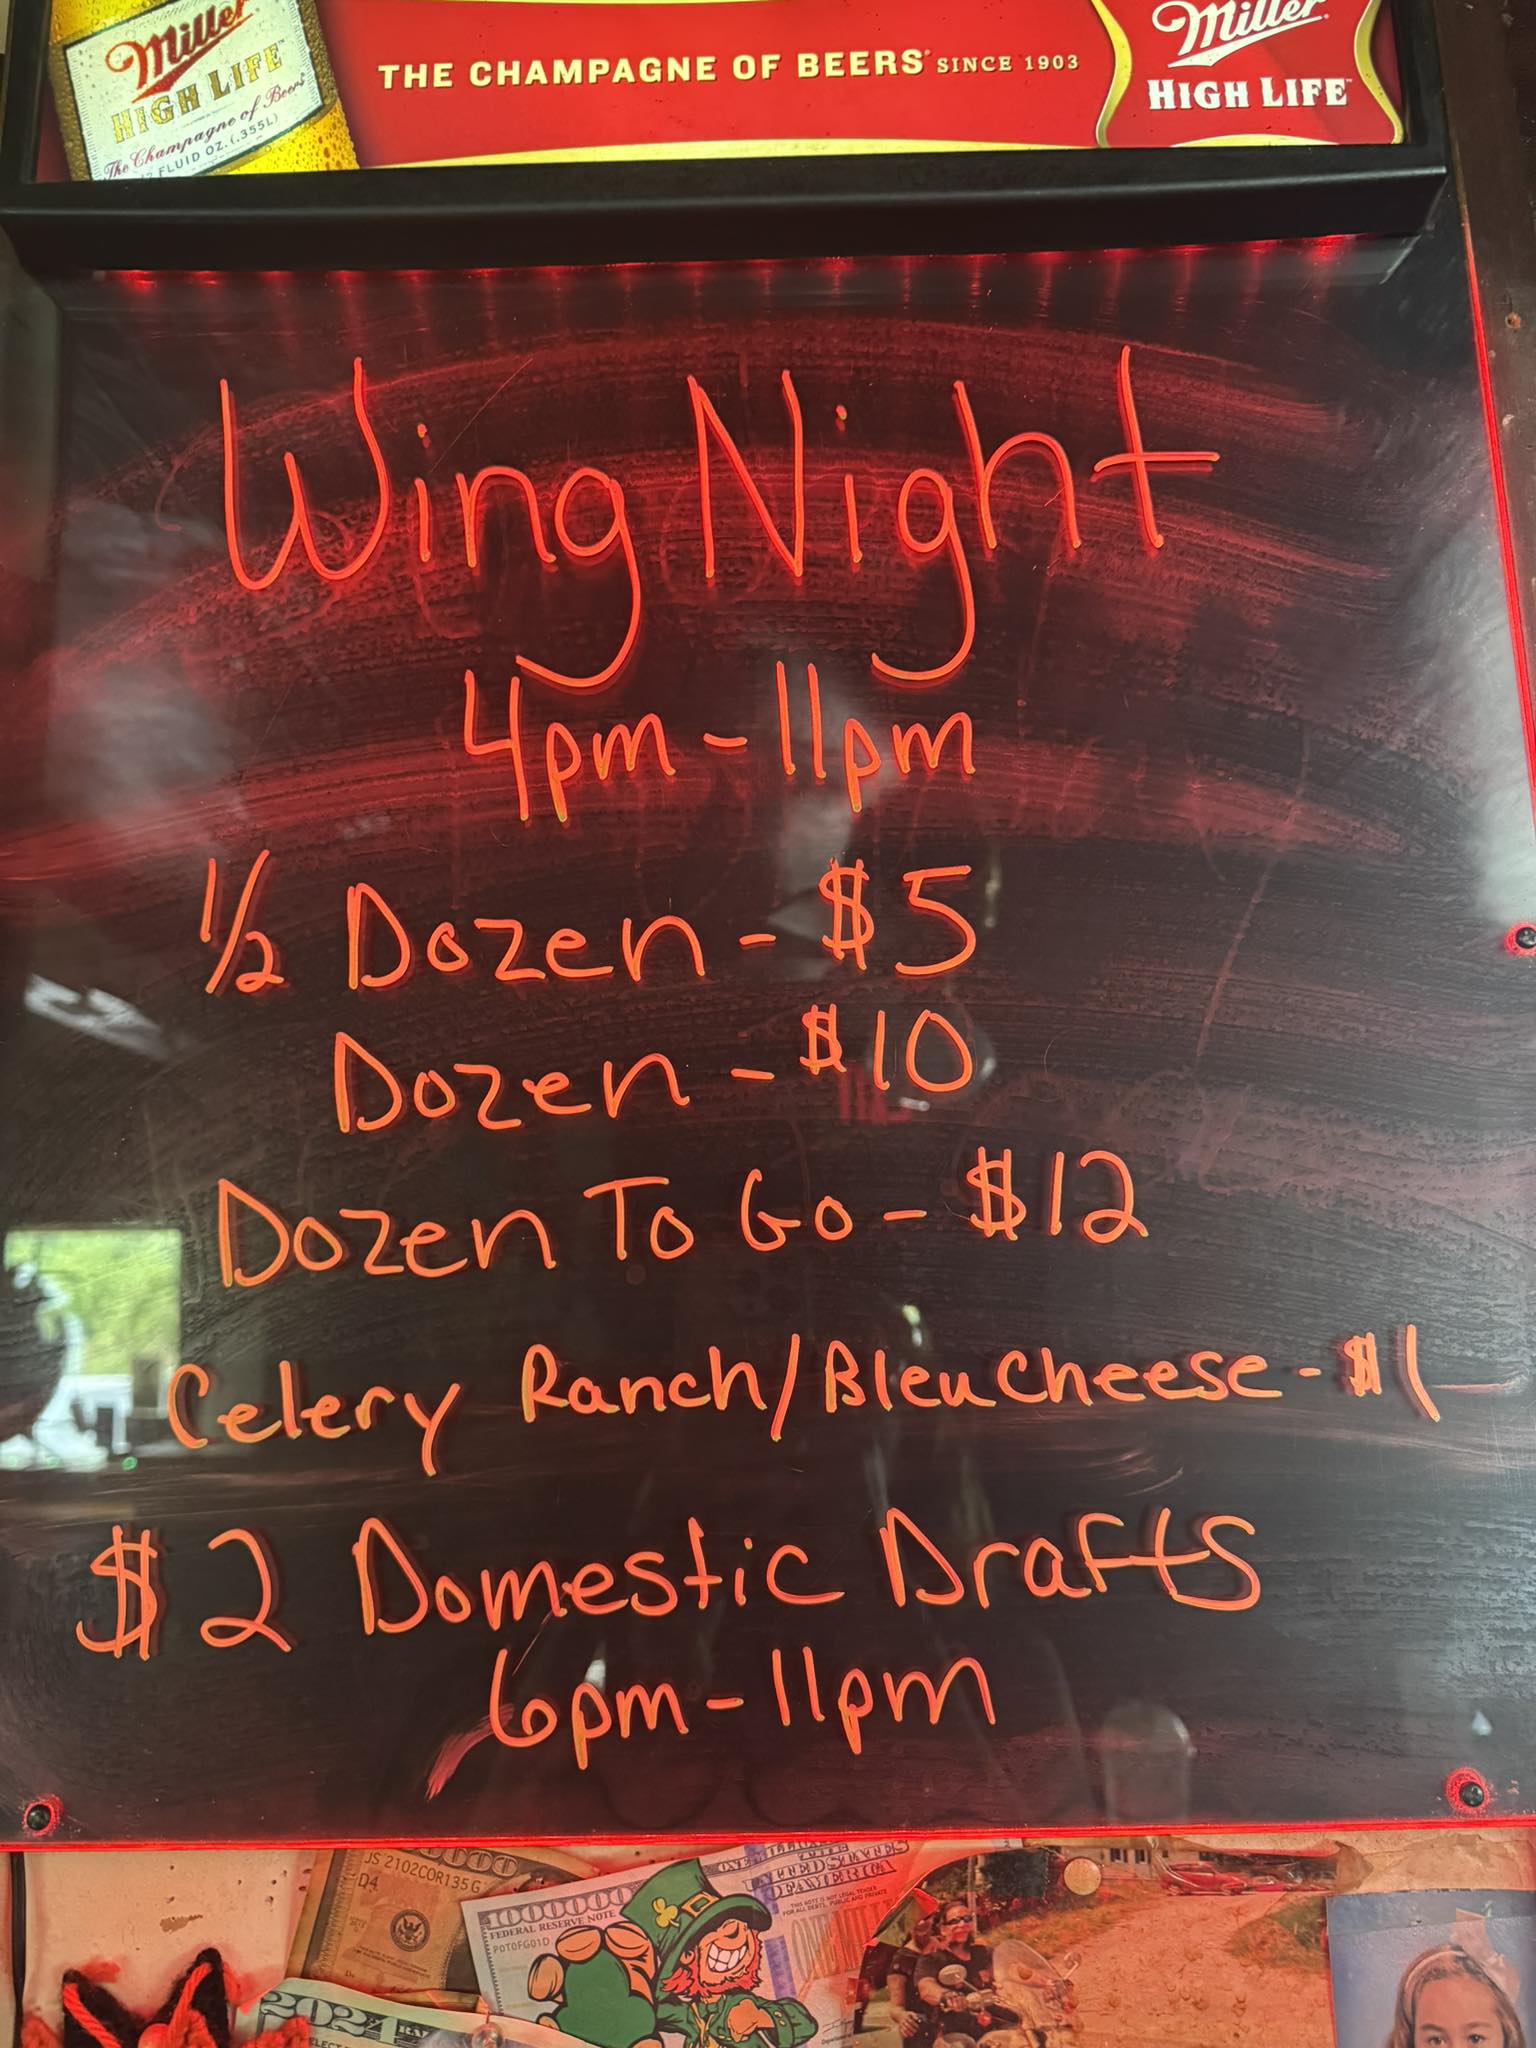 Miller
HIGH LIFE
The Champagne of Beers
12 FLUID OZ. (.355L)
THE CHAMPAGNE OF BEERS® SINCE 1903
Miller®
HIGH LIFE™
Wing Night
4pm - 11pm
1/2 Dozen - $5
Dozen - $10
Dozen To Go - $12
Celery Ranch/Bleu Cheese - $1
$2 Domestic Drafts
6pm - 11pm
JS 2102COR135G
D4
1000000
FEDERAL RESERVE NOTE
POTOFG01D
UNITED STATES
OF AMERICA
THIS NOTE IS NOT LEGAL TENDER
FOR ALL DEBTS, PUBLIC AND PRIVATE
2024